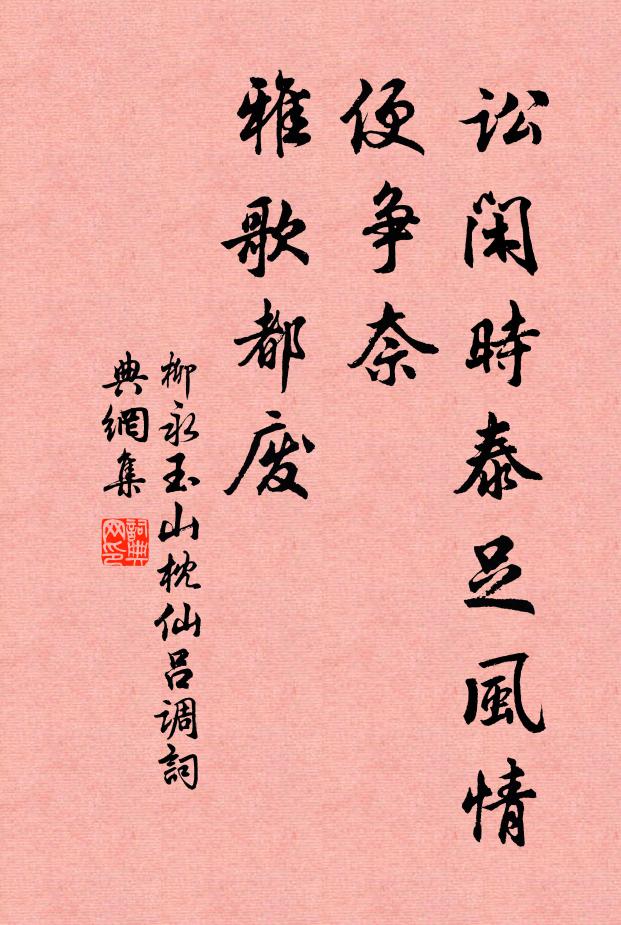 讼闲時泰足風情
便争奈
雅歌都废
柳永玉山枕仙吕调詞
典網集
詞典
网印